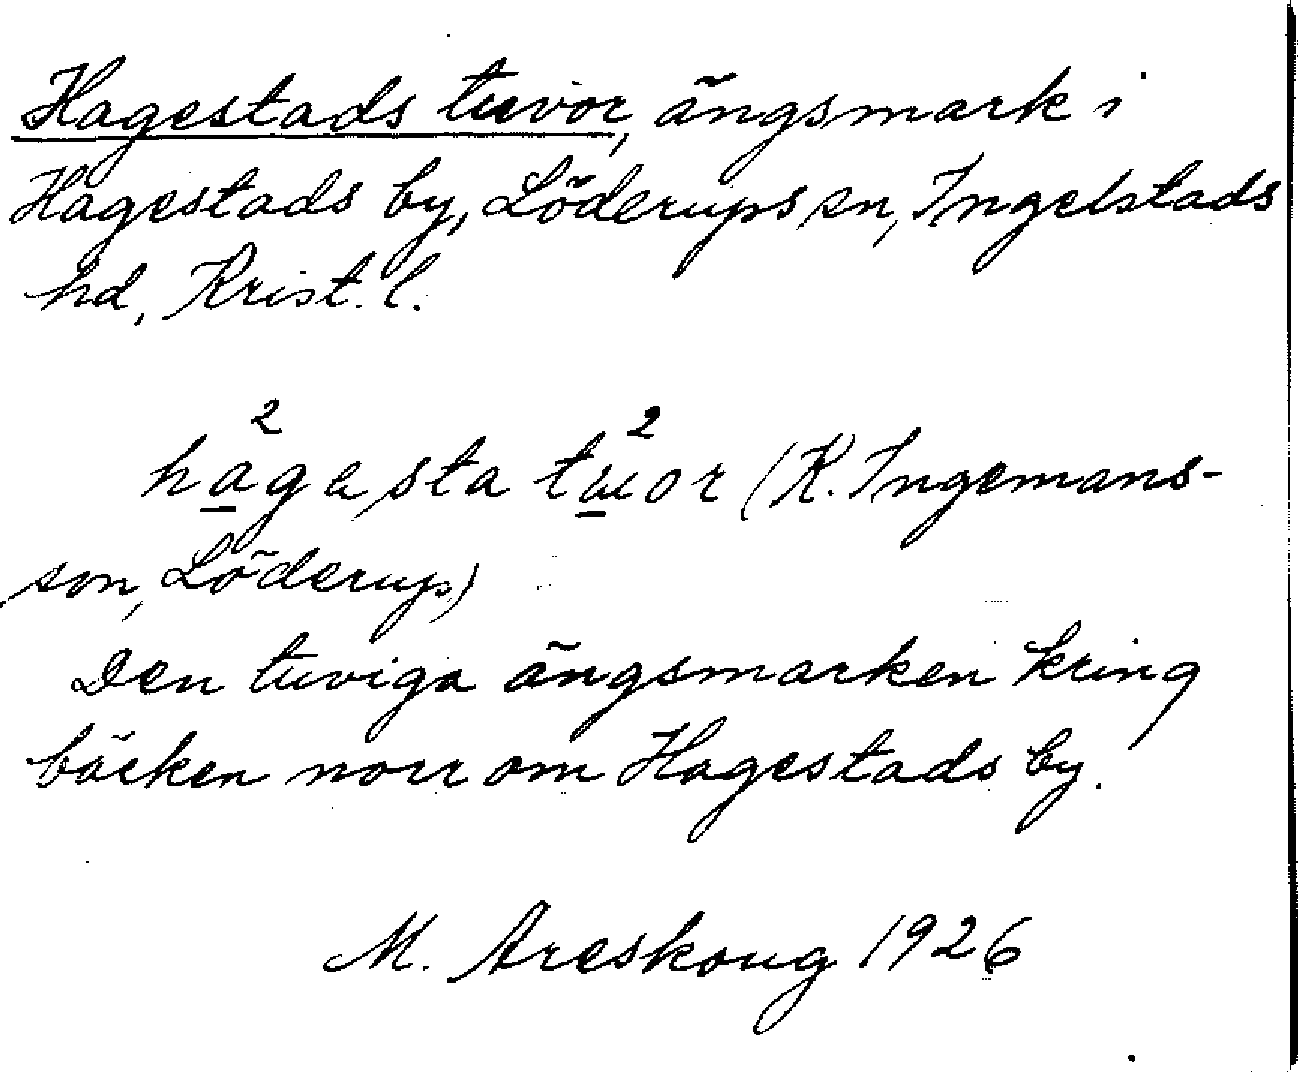 Hagestads tuvor, ängsmark i
Hagestads by, Löderups sn, Ingelstads
hd, Krist. l.
2 2
hagasta tuor (K. Ingemans-
son, Löderup)
Den tuviga ängsmarken kring
bäcken norr om Hagestads by.
M. Areskoug 1926